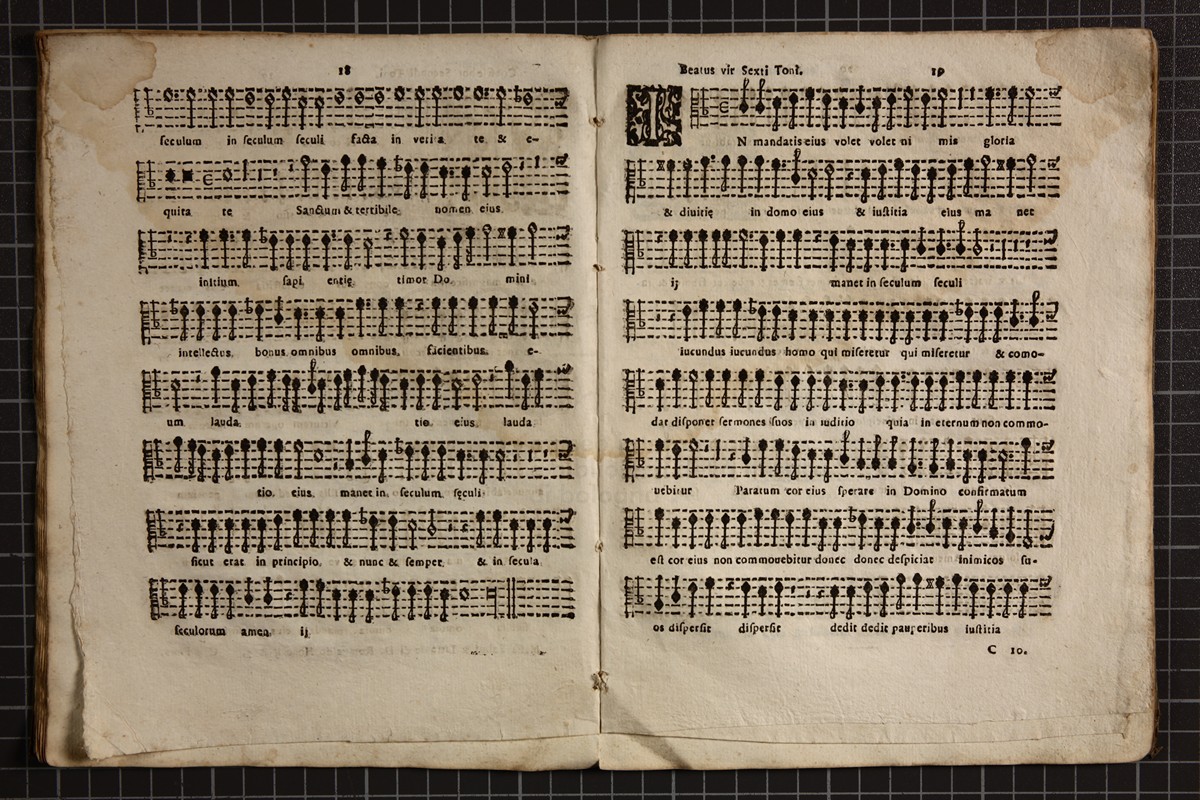 18
seculum in seculum seculi facta in verita te & e-
quita te Sanctum & terribile, nomen eius.
initium sapi entię timor Do. mini
intellectus, bonus omnibus omnibus, facientibus. e-
um lauda. tio. eius. lauda
tio. eius. manet in. seculum. sęculi
sicut erat in principio. & nunc & semper. & in secula.
seculorum amen. ij
Beatus vir Sexti Toni. 19
IN mandatis eius volet volet ni mis gloria
& diuitię in domo eius & iustitia eius ma net
ij manet in seculum seculi
iucundus iucundus homo qui miseretur qui miseretur & como-
dat disponet sermones suos in iuditio quia in eternum non commo-
uebitur Paratum cor eius sperare in Domino confirmatum
est cor eius non commouebitur donec donec despiciat inimicos su-
os dispersit dispersit dedit dedit pauperibus iustitia
C 10.